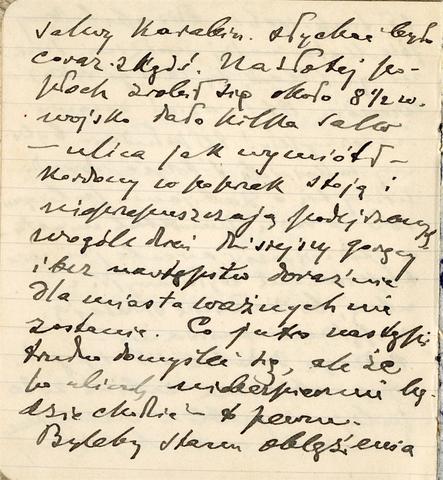 salwy Karabin. słychać było
coraz skądś. Na Złotej po-
płoch zrobił się około 8 1/2 w.
wojsko dało kilka salw
– ulica jak wymiótł –
Kordony w poprzek stoją i
nieprzepuszczają podejrzanych
wogóle dzień dzisiejszy gorący
i bez następstw doraźnie
dla miasta ważnych nie
zostanie. Co jutro nastąpi
trudno domyśleć się, ale że
po ulicach niebezpiecznie bę-
dzie chodzić – to pewne.
Byleby stanu oblężenia